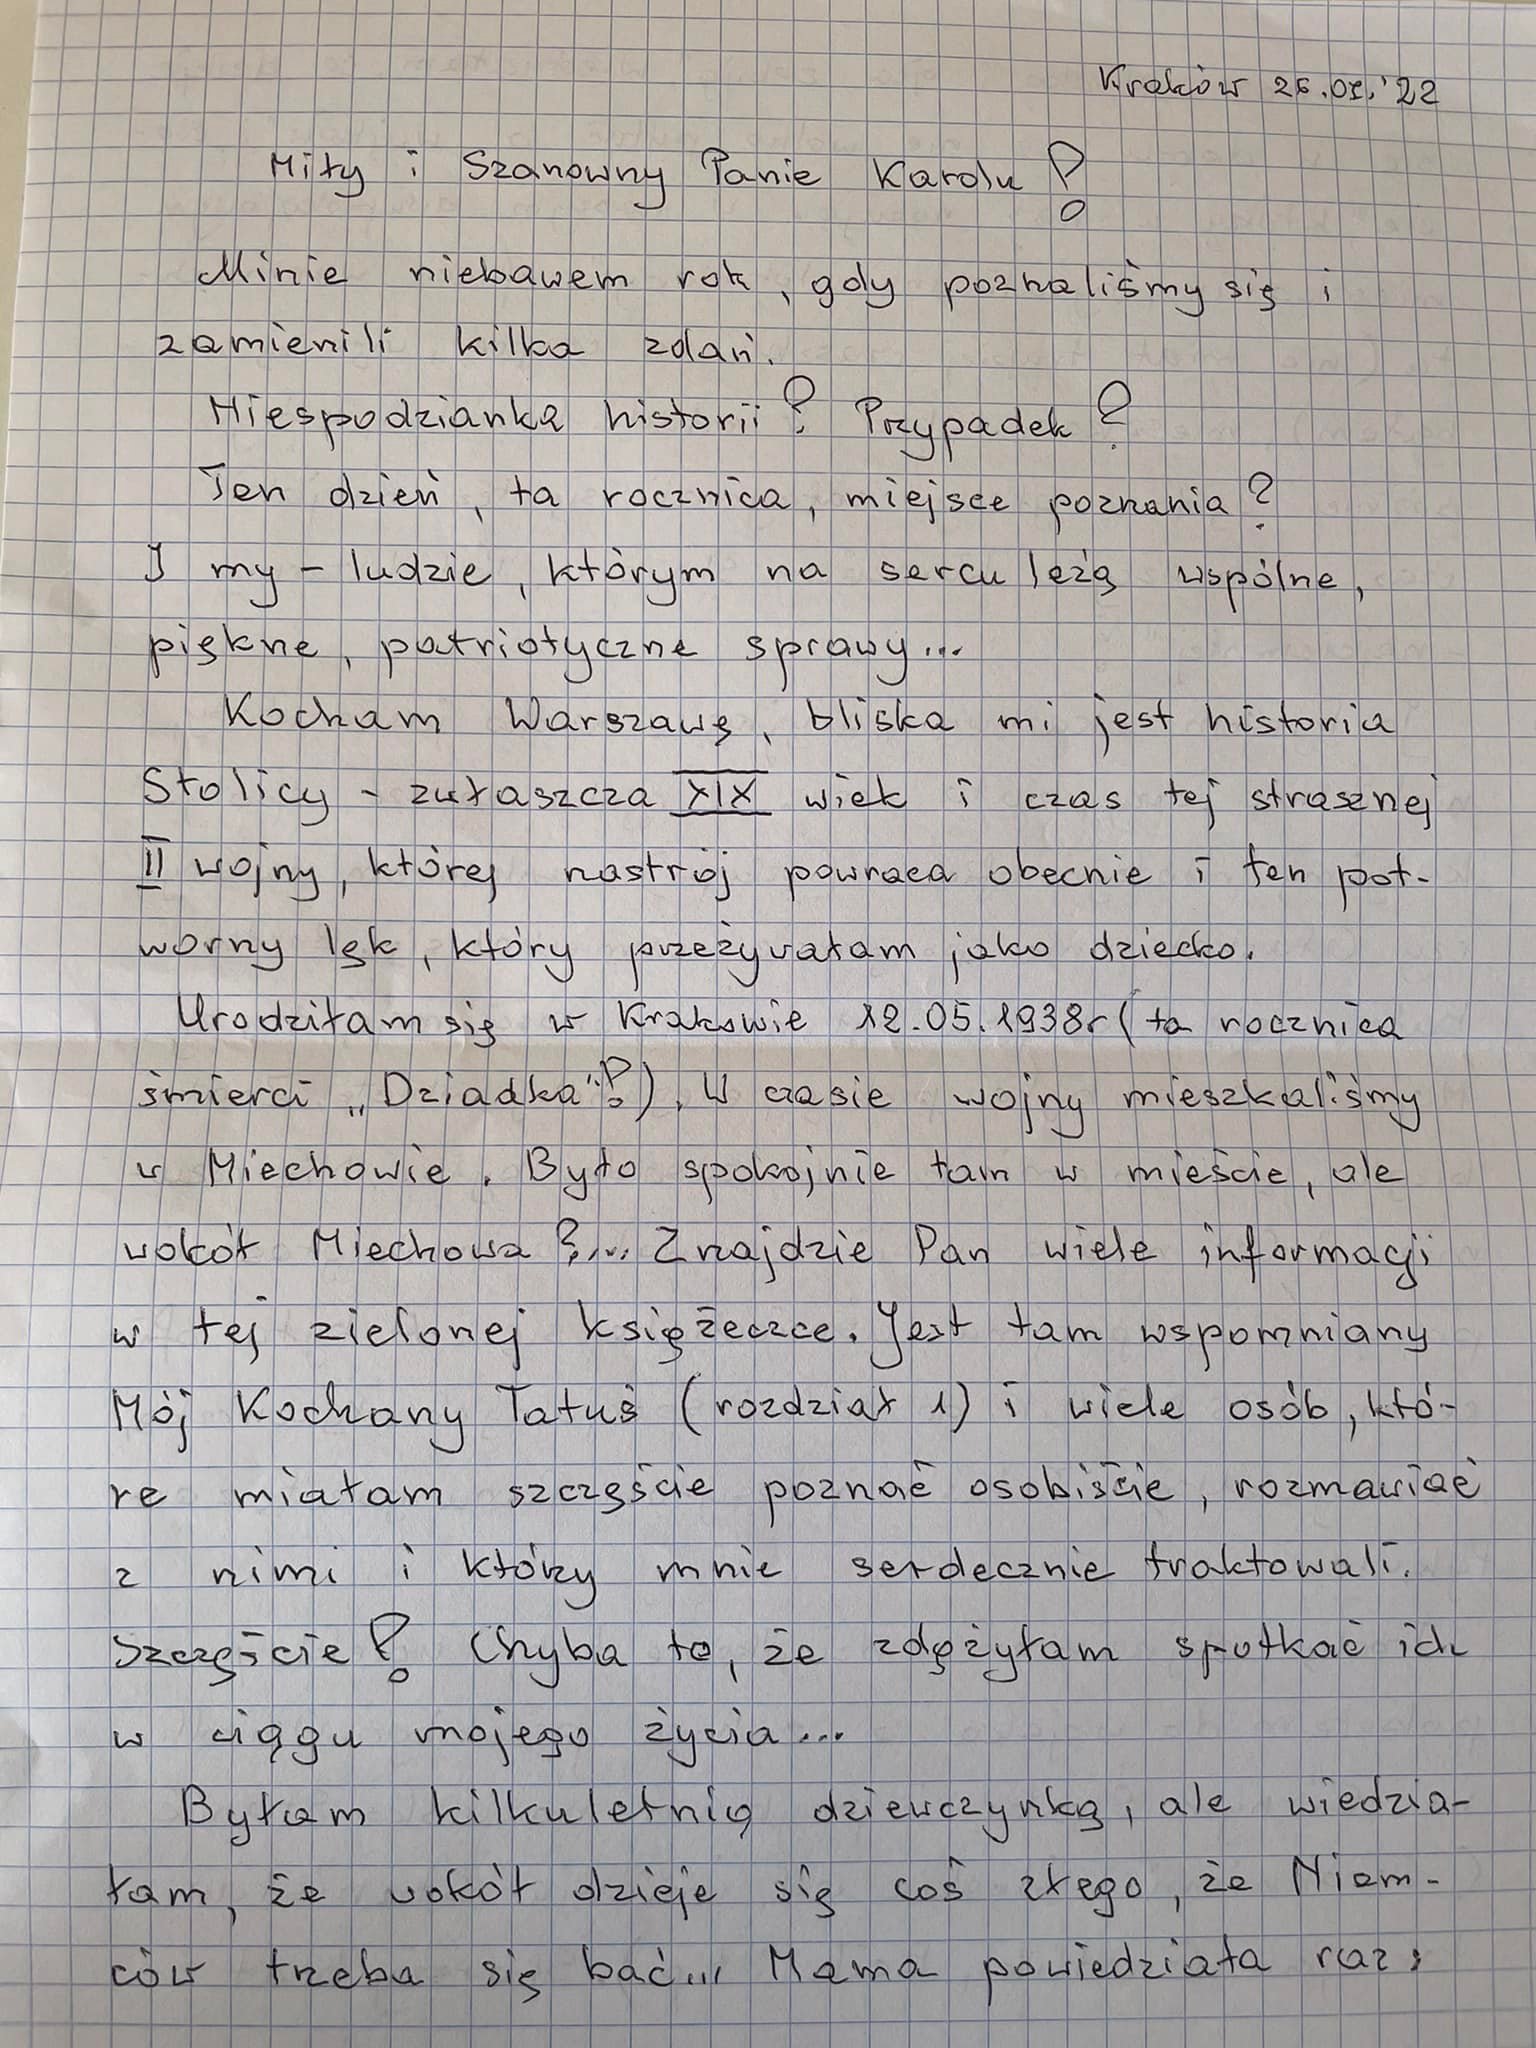 Kraków 26.01.'22
Miły i Szanowny Panie Karolu!
Minie niebawem rok, gdy poznaliśmy się i
zamienili kilka zdań.
Niespodzianka historii? Przypadek?
Ten dzień, ta rocznica, miejsce poznania?
I my – ludzie, którym na sercu leżą wspólne,
piękne, patriotyczne sprawy...
Kocham Warszawę, bliska mi jest historia
Stolicy – zwłaszcza XIX wiek i czas tej strasznej
II wojny, której nastrój powraca obecnie i ten pot-
worny lęk, który przeżywałam jako dziecko.
Urodziłam się w Krakowie 12.05.1938r (ta rocznica
śmierci „Dziadka"!). W czasie wojny mieszkaliśmy
w Miechowie. Było spokojnie tam w mieście, ale
wokół Miechowa?... Znajdzie Pan wiele informacji
w tej zielonej książeczce. Jest tam wspomniany
Mój Kochany Tatuś (rozdział 1) i wiele osób, któ-
re miałam szczęście poznać osobiście, rozmawiać
z nimi i którzy mnie serdecznie traktowali.
Szczęście! Chyba to, że zdążyłam spotkać ich
w ciągu mojego życia...
Byłam kilkuletnią dziewczynką, ale wiedzia-
łam, że wokół dzieje się coś złego, że Niem-
ców trzeba się bać... Mama powiedziała raz: